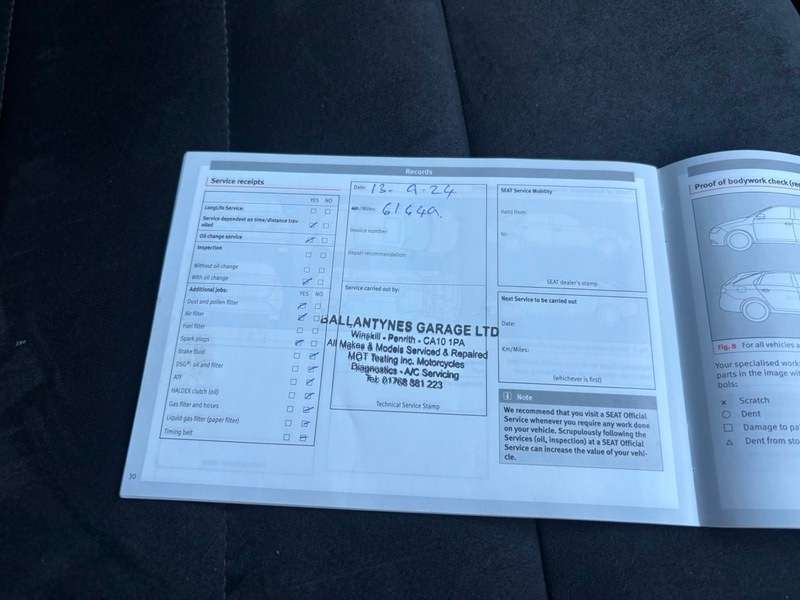 Records
Service receipts
YES NO
LongLife Service:
Service dependent on time/distance trav-
elled
Oil change service
Inspection
Without oil change
With oil change
Additional jobs: YES NO
Dust and pollen filter
Air filter
Fuel filter
Spark plugs
Brake fluid
DSG® oil and filter
ATF
HALDEX clutch (oil)
Gas filter and hoses
Liquid gas filter (paper filter)
Timing belt
30
Date: 13-9-24
Km/Miles: 61649
Invoice number:
Repair recommendation:
Service carried out by:
BALLANTYNES GARAGE LTD
Winskill - Penrith - CA10 1PA
All Makes & Models Serviced & Repaired
MOT Testing inc. Motorcycles
Diagnostics - A/C Servicing
Tel: 01768 881 223
Technical Service Stamp
SEAT Service Mobility
Valid from:
to:
SEAT dealer's stamp
Next Service to be carried out
Date:
Km/Miles:
(whichever is first)
i Note
We recommend that you visit a SEAT Official
Service whenever you require any work done
on your vehicle. Scrupulously following the
Services (oil, inspection) at a SEAT Official
Service can increase the value of your vehi-
cle.
Proof of bodywork check (re
Fig. 8 For all vehicles a
Your specialised work
parts in the image wit
bols:
× Scratch
Dent
Damage to pa
Dent from sto